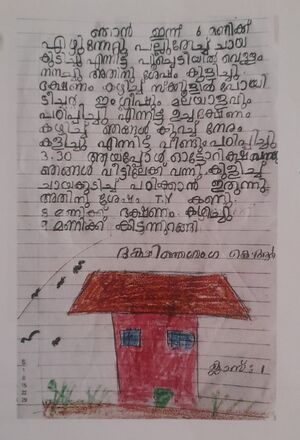 ഞാൻ ഇന്ന് 6 മണിക്ക്
എഴുന്നേറ്റു പല്ലുതേച്ച് ചായ
കുടിച്ചു എന്നിട്ട് പച്ചെടിയിൽ വെള്ളം
നനച്ചു അതിനു ശേഷം കുളിച്ചു.
ഭക്ഷണം കഴിച്ച് സ്ക്കൂളിൽ പോയി
ടീച്ചർ ഇംഗ്ലീഷും മലയാളവും
പഠിപ്പിച്ചു എന്നിട്ട് ഉച്ചഭക്ഷണം
കഴിച്ച് ഞങ്ങൾ കുറച്ച് നേരം
കളിച്ചു എന്നിട്ട് വീണ്ടും പഠിപ്പിച്ചു
3.30 ആയപ്പോൾ ഓട്ടോറിക്ഷ വന്നു
ഞങ്ങൾ വീട്ടിലേക്ക് വന്നു കുളിച്ച്
ചായകുടിച്ച് പഠിക്കാൻ ഇരുന്നു
അതിനു ശേഷം T.V കണ്ടു
8 മണിക്ക് ഭക്ഷണം കഴിച്ചു
9 മണിക്ക് കിടന്നുറങ്ങി
ക്ലാസ്: 1